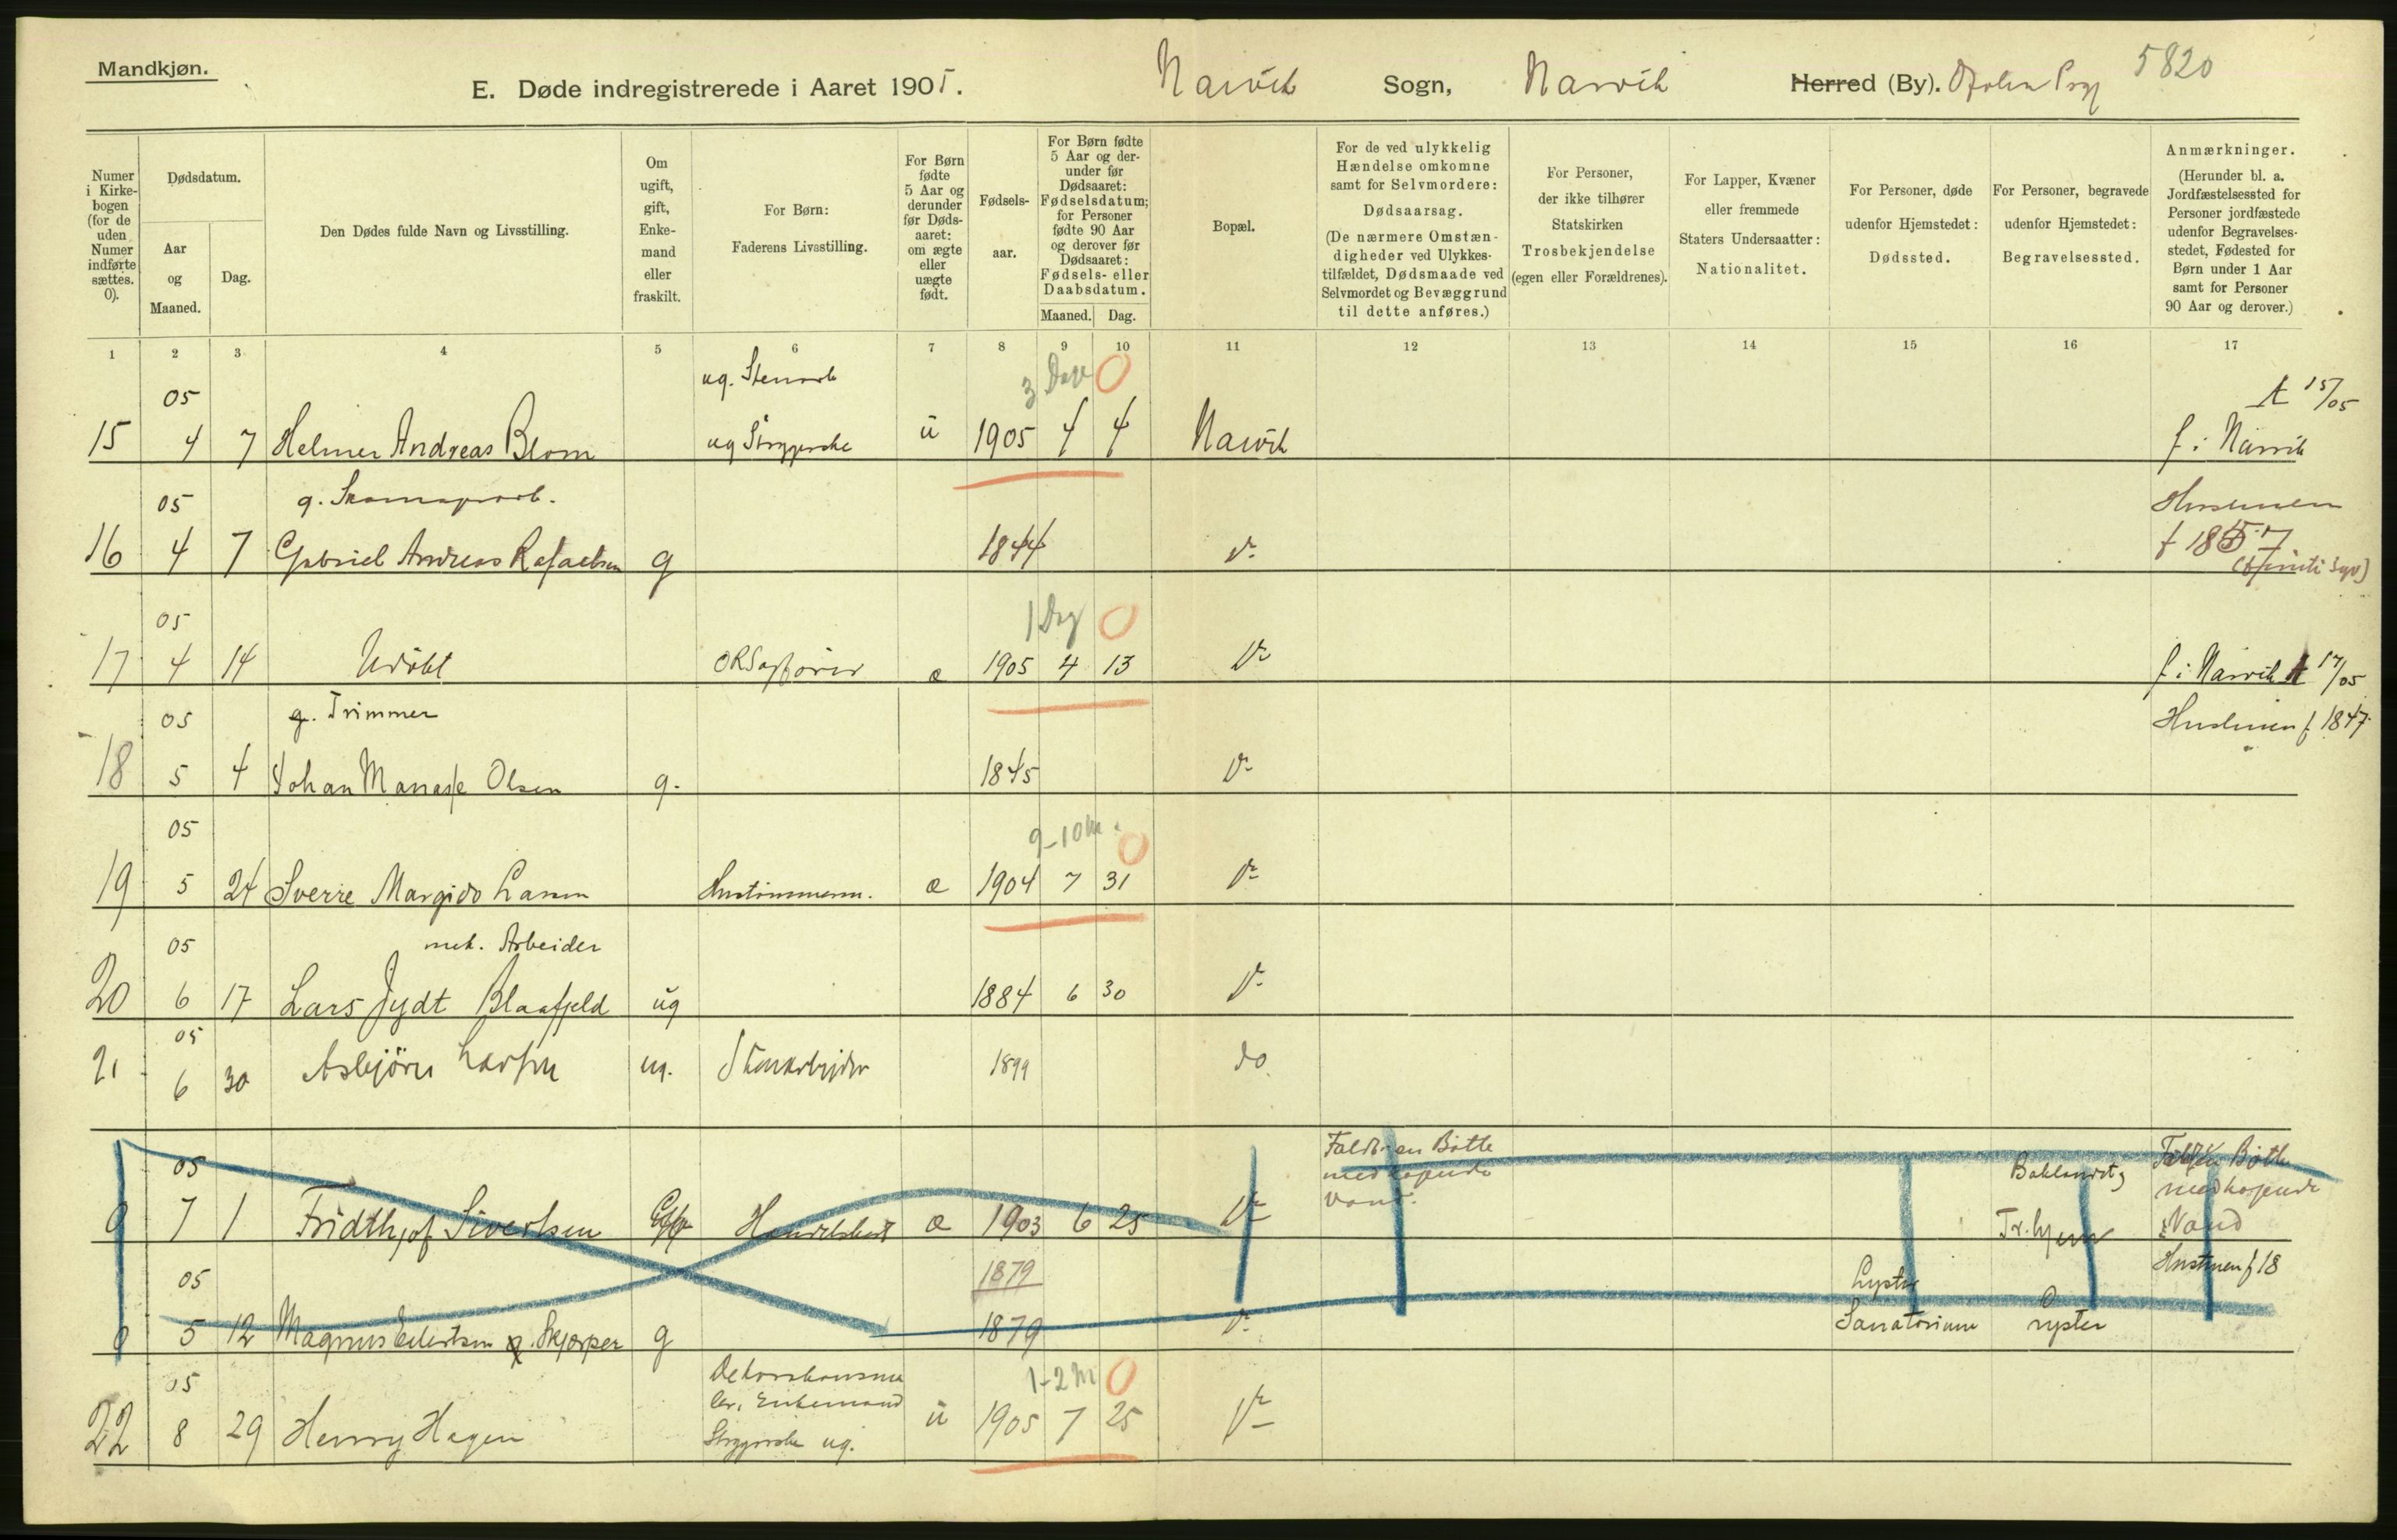 Mandkjøn.
E. Døde indregistrerede i Aaret 1905. Narvik Sogn, Narvik Herred (By). Ofoten Prgj 5820
Numer i Kirkebogen (for de uden Numer indførte sættes. 0).
Dødsdatum.
Aar og Maaned.
Dag.
Den Dødes fulde Navn og Livsstilling.
Om ugift, gift, Enkemand eller fraskilt.
For Børn: Faderens Livsstilling.
For Børn fødte 5 Aar og derunder før Dødsaaret: om ægte eller uægte født.
Fødselsaar.
For Børn fødte 5 Aar og derunder før Dødsaaret: Fødselsdatum; for Personer fødte 90 Aar og derover før Dødsaaret: Fødsels- eller Daabsdatum.
Maaned. Dag.
Bopæl.
For de ved ulykkelig Hændelse omkomne samt for Selvmordere: Dødsaarsag. (De nærmere Omstændigheder ved Ulykkestilfældet, Dødsmaade ved Selvmordet og Bevæggrund til dette anføres.)
For Personer, der ikke tilhører Statskirken Trosbekjendelse (egen eller Forældrenes).
For Lapper, Kvæner eller fremmede Staters Undersaatter: Nationalitet.
For Personer, døde udenfor Hjemstedet: Dødssted.
For Personer, begravede udenfor Hjemstedet: Begravelsessted.
Anmærkninger. (Herunder bl. a. Jordfæstelsessted for Personer jordfæstede udenfor Begravelsesstedet, Fødested for Børn under 1 Aar samt for Personer 90 Aar og derover.)
1 2 3 4 5 6 7 8 9 10 11 12 13 14 15 16 17
05 ug. Stenarb 3 Dage 0 A 15/05
15 4 7 Helmer Andreas Blom ug Strygerske u 1905 4 4 Narvik f. i Narvik
05 g. Hustruen
16 4 7 Gabriel Andreas Rafaelsen g 1844 Do f 1857
05 1 Dag 0
17 4 14 Udøbt ORSagfører æ 1905 4 13 Do f. i Narvik A 17/05
05 g. Trimmer Hustruen f 1847
18 5 4 Johan Manasse Olsen g. 1845 Do
05 9-10 M. 0
19 5 24 Sverre Margido Larsen Hustømmerm. æ 1904 7 31 Do
05 mek. Arbeider
20 6 17 Lars Jydt Blaafjeld ug 1884 6 30 Do
05
21 6 30 Asbjörn Larsen ug. Stenarbeider 1899 do.
05 Faldt i en Bøtte med kogende Vand. Baklandet, Faldt i en Bøtte med kogende Vand
0 7 1 Fridthjof Sivertsen Handelsbest æ 1903 6 25 Do Tr.hjem
05 1879 Lyster Hustruen f 18
0 5 12 Magnus Eilertsen g. Skjærper g 1879 Do Sanatorium Lyster
05 Dekorationsmaler, Enkemand 1-2 M 0
22 8 29 Henry Hagen Strygerske ug. u 1905 7 25 Do